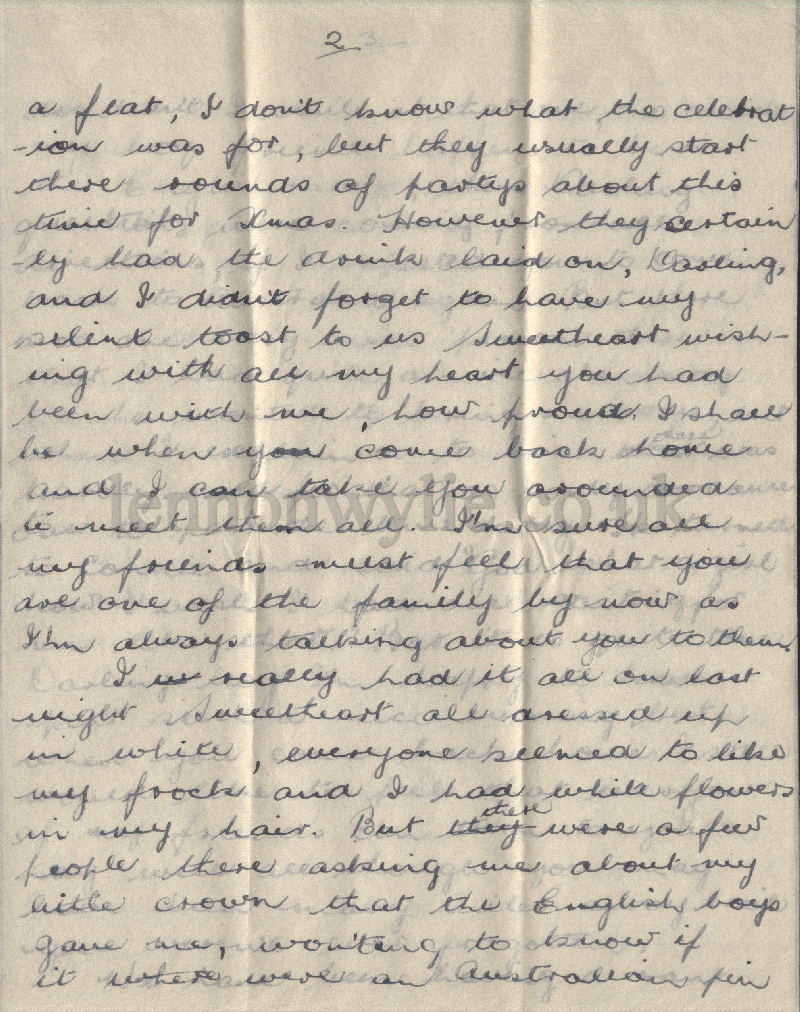 2
a flat, I don't know what the celebrat
-ion was for, but they usually start
there rounds of partys about this
time for Xmas. However they certain
-ly had the drink laid on, Darling,
and I didn't forget to have my
silent toast to us Sweetheart wish-
ing with all my heart you had
been with me, how proud I shall
be when you come back home
and I can take you arounded
to meet them all. I'm sure all
my friends must feel that you
are one of the family by now as
I'm always talking about you to them.
I w really had it all on last
night Sweetheart all dressed up
in white, everyone seemed to like
my frock and I had white flowers
there
in my hair. But they were a few
people there asking me about my
little crown that the English boys
gave me, won'ting to know if
it where were an Australian pin
lennonwylie.co.uk